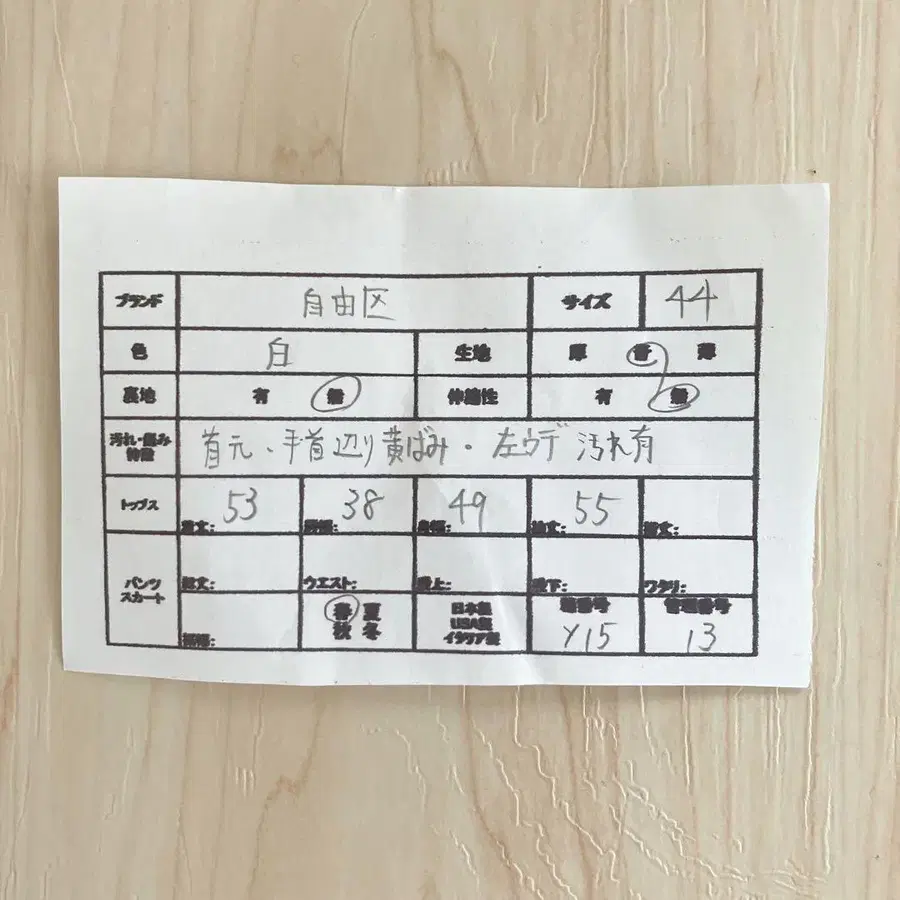 ブランド 自由区 サイズ 44
色 白 生地 厚 普 薄
裏地 有 無 伸縮性 有 無
汚れ・傷み 首元、手首辺り黄ばみ・左ウデ 汚れ有
特徴
トップス 53 38 49 55
着丈: 肩幅: 身幅: 袖丈: 裄丈:
パンツ
スカート
総丈: ウエスト: 股上: 股下: ワタリ:
裾幅: 春 夏 日本製 箱番号 管理番号
秋 冬 USA製 Y15 13
イタリア製